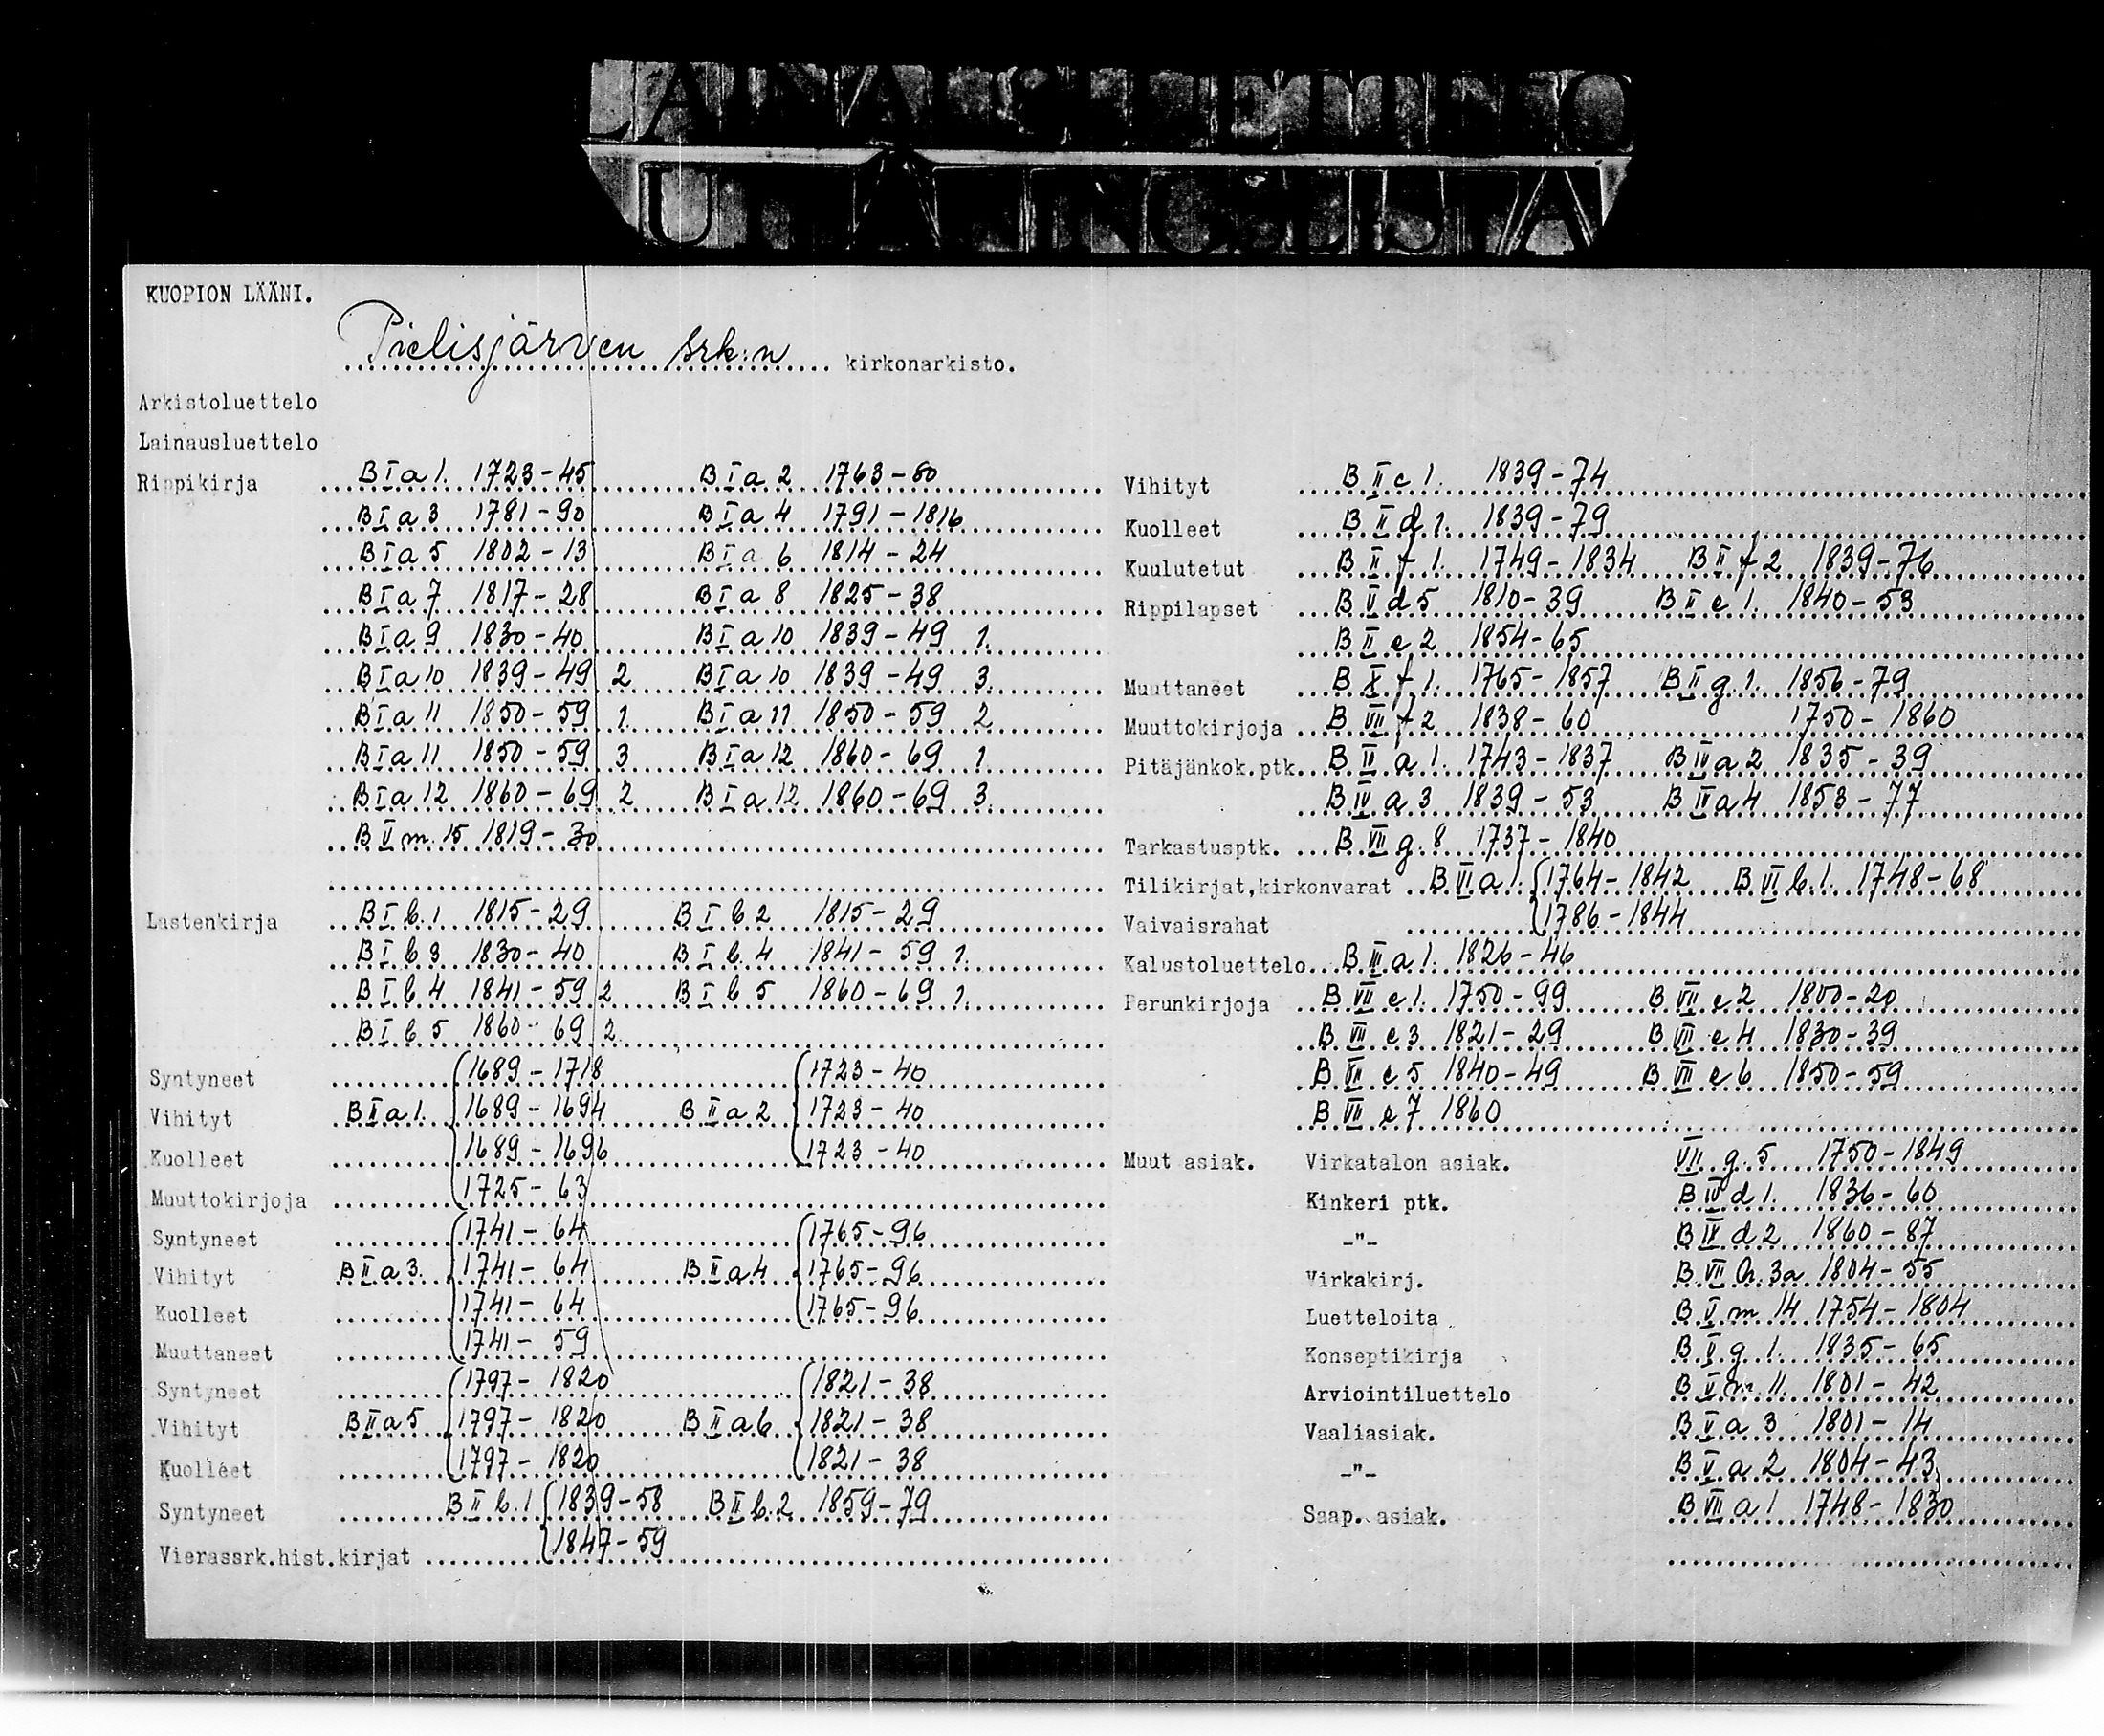 KUOPION LÄÄNI.
Pielisjärven srk:n kirkonarkisto.
Arkistoluettelo
Lainausluettelo
Rippikirja B I a 1. 1723-45 B I a 2 1763-80
B I a 3 1781-90 B I a 4 1791-1816
B I a 5 1802-13 B I a 6 1814-24
B I a 7 1817-28 B I a 8 1825-38
B I a 9 1830-40 B I a 10 1839-49 1.
B I a 10 1839-49 2 B I a 10 1839-49 3.
B I a 11 1850-59 1. B I a 11 1850-59 2
B I a 11 1850-59 3 B I a 12 1860-69 1
B I a 12 1860-69 2 B I a 12 1860-69 3.
B V m. 15 1819-30
Lastenkirja B I b. 1 1815-29 B I b 2 1815-29
B I b 3 1830-40 B I b. 4 1841-59 1.
B I b 4 1841-59 2 B I b 5 1860-69 1.
B I b 5 1860-69 2
Syntyneet 1689-1718 1723-40
Vihityt B II a 1. 1689-1694 B II a 2 1723-40
Kuolleet 1689-1696 1723-40
Muuttokirjoja 1725-63
Syntyneet 1741-64 1765-96
Vihityt B II a 3. 1741-64 B II a 4 1765-96
Kuolleet 1741-64 1765-96
Muuttaneet 1741-59
Syntyneet 1797-1820 1821-38
Vihityt B II a 5 1797-1820 B II a 6 1821-38
Kuolleet 1797-1820 1821-38
Syntyneet B II b. 1 1839-58 B II b. 2 1859-79
1847-59
Vierassrk.hist.kirjat
Vihityt B II c 1. 1839-74
Kuolleet B II d 1. 1839-79
Kuulutetut B II f 1. 1749-1834 B II f 2 1839-76
Rippilapset B V d 5 1810-39 B II e 1. 1840-53
B II e 2 1854-65
Muuttaneet B X f 1. 1765-1857 B II g. 1. 1856-79
Muuttokirjoja B VII f 2 1838-60 1750-1860
Pitäjänkok.ptk. B IV a 1. 1743-1837 B IV a 2 1835-39
B IV a 3 1839-53 B IV a 4 1853-77
Tarkastusptk. B VII g. 8 1737-1840
Tilikirjat,kirkonvarat B VI a 1. 1764-1842 B VI b. 1. 1748-68
Vaivaisrahat 1786-1844
Kalustoluettelo B III a 1. 1826-46
Perunkirjoja B VII e 1. 1750-99 B VII e 2 1800-20
B VII e 3 1821-29 B VII e 4 1830-39
B VII e 5 1840-49 B VII e 6 1850-59
B VII e 7 1860
Muut asiak. Virkatalon asiak. VII g. 5 1750-1849
Kinkeri ptk. B IV d 1. 1836-60
-"- B IV d 2 1860-87
Virkakirj. B VII h. 3a 1804-55
Luetteloita B V m 14 1754-1804
Konseptikirja B V g 1. 1835-65
Arviointiluettelo B V m 11. 1801-42
Vaaliasiak. B V a 3 1801-14
-"- B V a 2 1804-43
Saap. asiak. B VII a 1 1748-1830